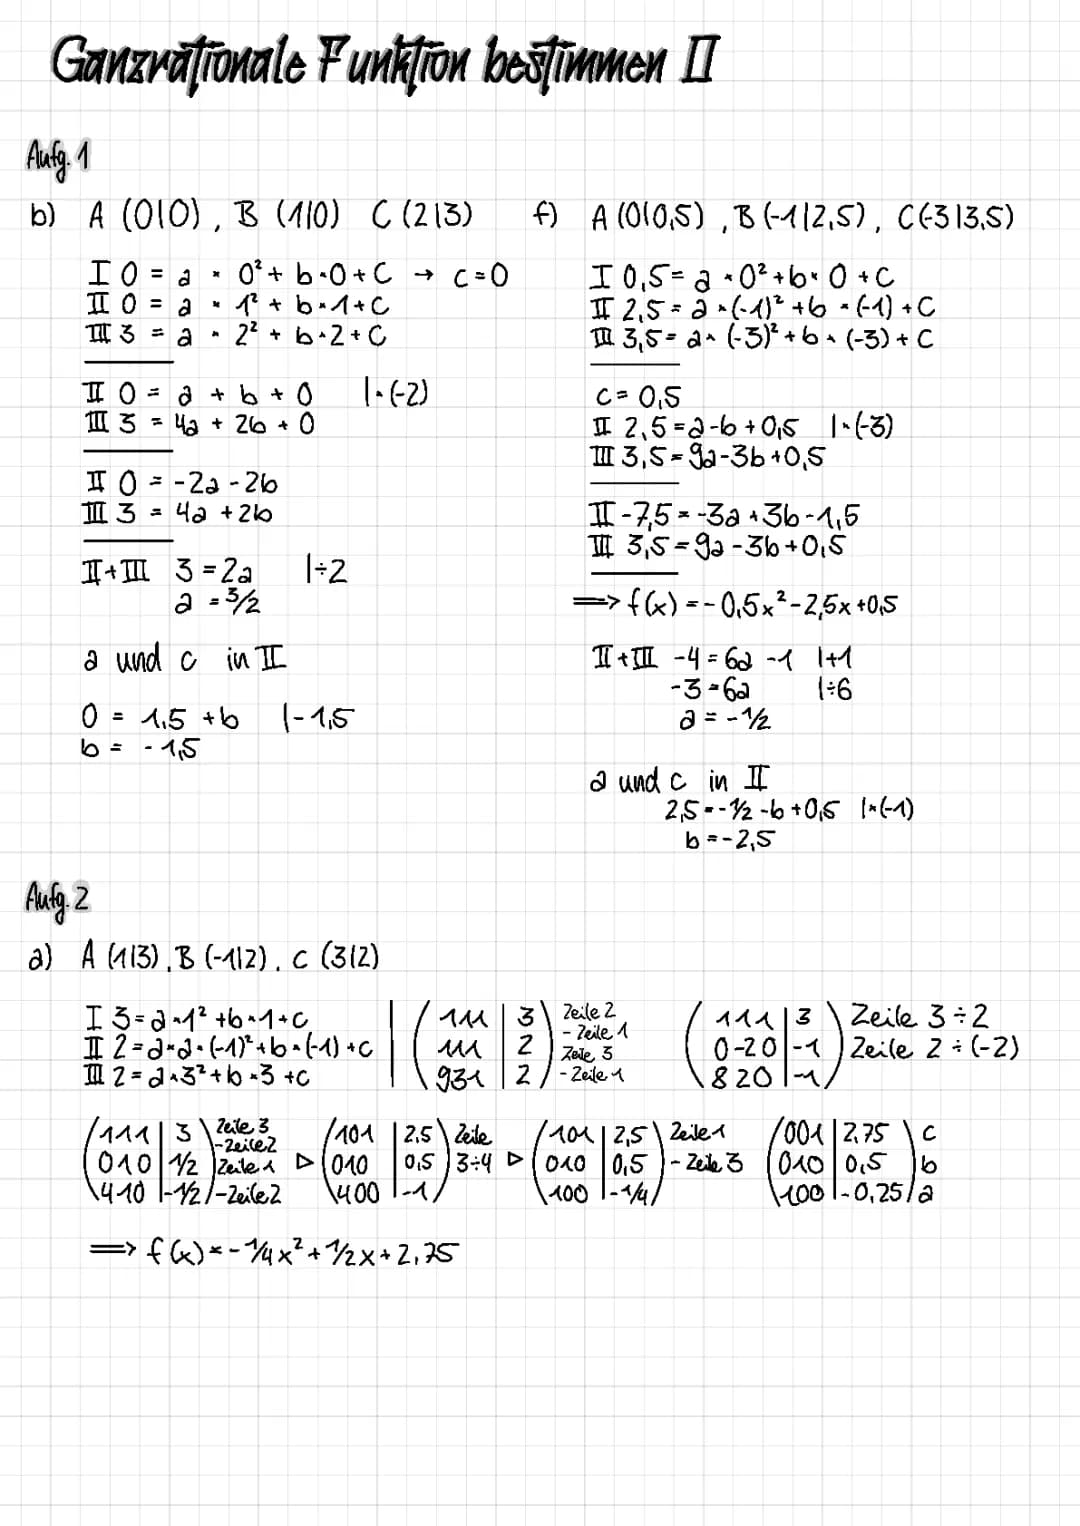 Ganzrationale Funktion bestimmen II
Aufg. 1
b) A (0|0), B (1|0) C (2|3)
I 0 = a · 0² + b·0 + C → c=0
II 0 = a · 1² + b·1+C
III 3 = a · 2² + b·2 + C
II 0 = a + b + 0 |·(-2)
III 3 = 4a + 2b + 0
II 0 = -2a - 2b
III 3 = 4a + 2b
II+III 3 = 2a |÷2
a = 3/2
a und c in II
0 = 1,5 + b |-1,5
b = -1,5
f) A (0|0,5), B (-1|2,5), C(-3|3,5)
I 0,5 = a · 0² + b · 0 + C
II 2,5 = a · (-1)² + b · (-1) + C
III 3,5 = a · (-3)² + b · (-3) + C
c = 0,5
II 2,5 = a - b + 0,5 |·(-3)
III 3,5 = 9a - 3b + 0,5
II -7,5 = -3a + 3b - 1,5
III 3,5 = 9a - 3b + 0,5
⟹ f(x) = -0,5x² - 2,5x + 0,5
II + III -4 = 6a - 1 |+1
-3 = 6a |÷6
a = -1/2
a und c in II
2,5 = -1/2 - b + 0,5 |·(-1)
b = -2,5
Aufg. 2
a) A (1|3), B (-1|2), C (3|2)
I 3 = a · 1² + b · 1 + C
II 2 = a · a · (-1)² + b · (-1) + C
III 2 = a · 3² + b · 3 + C
111 | 3 Zeile 2 - Zeile 1
111 | 2 Zeile 3
931 | 2 - Zeile 1
1 1 1 | 3 Zeile 3 ÷ 2
0 -2 0 | -1 Zeile 2 ÷ (-2)
8 2 0 | -1
111 | 3 Zeile 3 - Zeile 2
010 | 1/2 Zeile 1
410 | -1/2 - Zeile 2
▷
101 | 2,5 Zeile
010 | 0,5 3÷4
400 | -1
▷
101 | 2,5 Zeile 1
010 | 0,5 - Zeile 3
100 | -1/4
001 | 2,75 C
010 | 0,5 b
100 | -0,25 a
⟹ f(x) = -1/4x² + 1/2x + 2,75